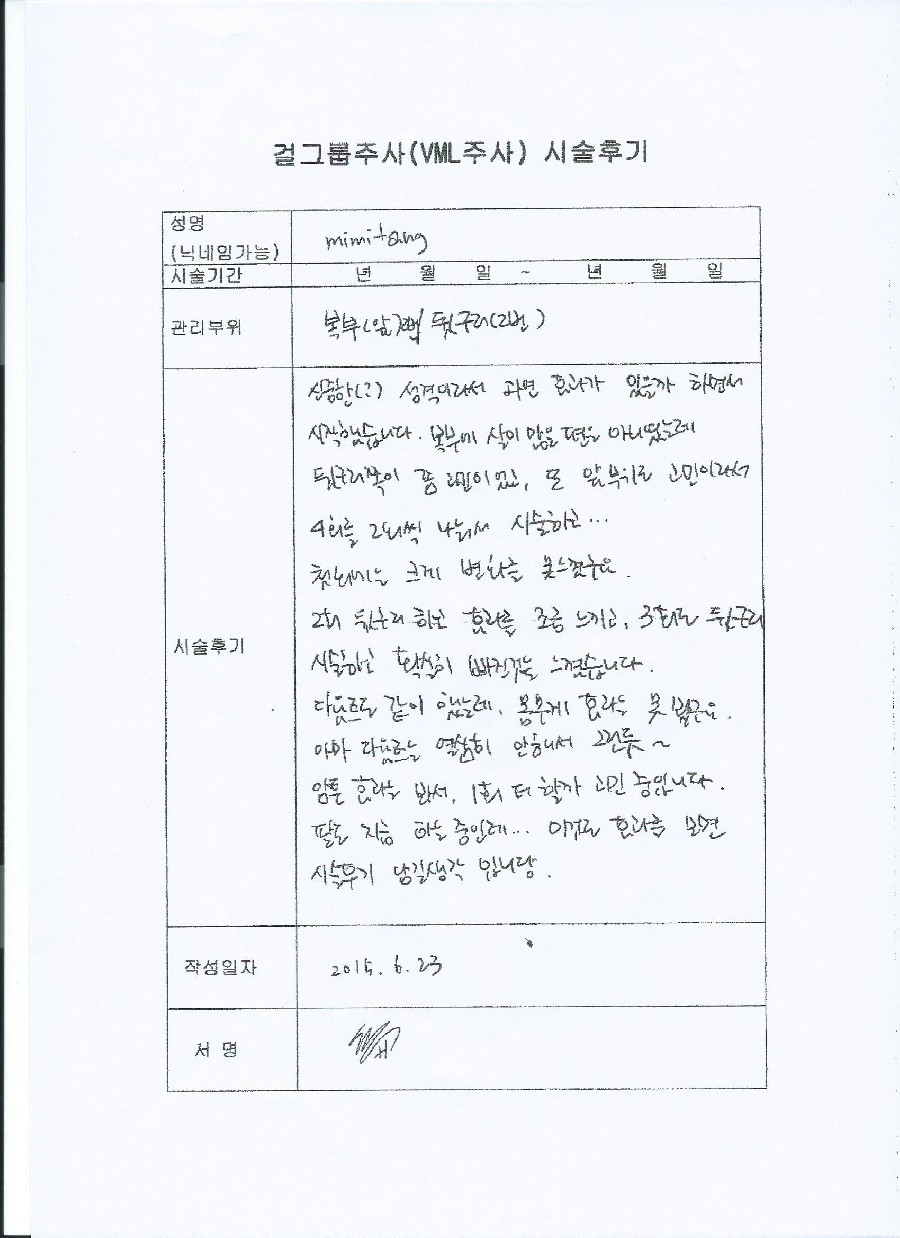 걸그룹주사(VML주사) 시술후기
성명
(닉네임가능)
mimitang
시술기간 년 월 일 ~ 년 월 일
관리부위
복부(앞) 뒷구리(2번)
시술후기
신중한(?) 성격이라서 과연 효과가 있을까 하면서
시작했습니다. 복부에 살이 많은 편은 아니었는데
뒷구리쪽이 좀 고민이었고, 또 앞부위도 고민이라서
4회를 2회씩 나눠서 시술하고...
첫회에는 크게 변화를 못느꼈구요.
2회 뒷구리 하고 효과를 조금 느끼고, 3회로 뒷구리
시술하고 확실히 빠진것을 느꼈습니다.
다음르도 같이 했는데, 효과는 못봤군요.
아마 다음르는 열심히 안해서 그런듯~
암튼 효과는 봐서, 1회 더 할까 고민 중입니다.
팔도 지금 하는 중인데... 이것도 효과를 보면
시술후기 남길생각 입니당.
작성일자
2015. 6. 23
서 명